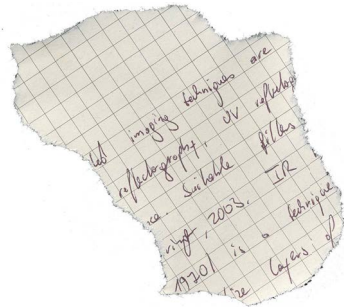 ted imaging techniques are
reflectography, UV reflectog
ica. Suitable filters
ring, 2003. IR
1970) is a technique
ize layers of